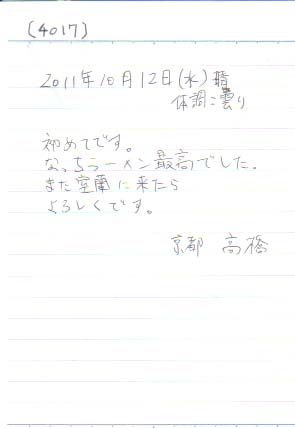 (4017)
2011年10月12日(水) 晴
体調：曇り
初めてです。
なっちラーメン最高でした。
また室蘭に来たら
よろしくです。
京都 高橋